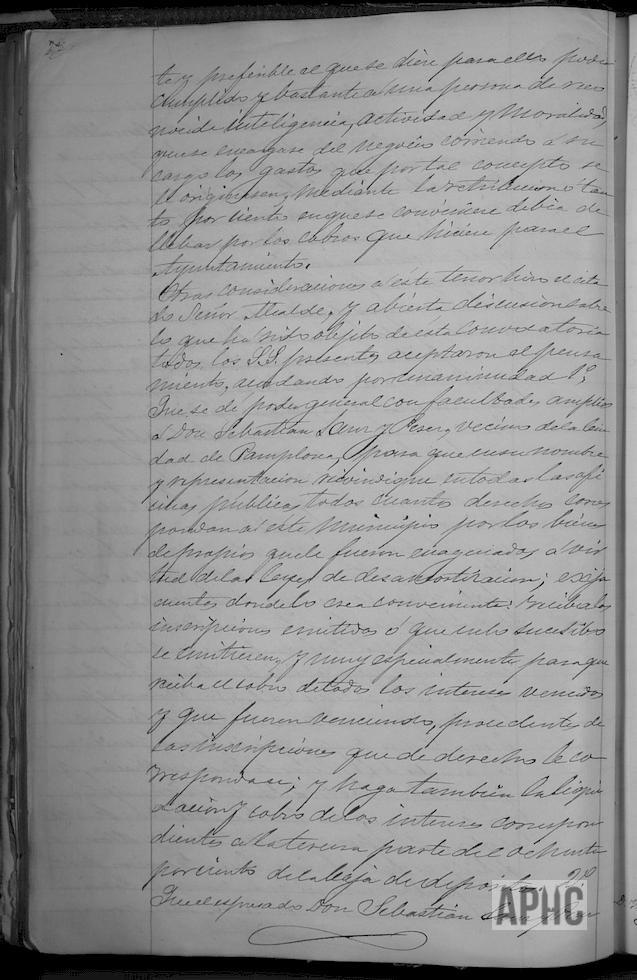 te y preferible el que se diere para ello poder
cumplido y bastante a una persona de reco
nocida inteligencia, actividad y moralidad,
que se encargase del negocio corriendo á su
cargo los gastos que por tal concepto se
le originasen, mediante la retribucion ó tan
to por ciento en que se conviniere debia de
llebar por los cobros que hiciere para el
Ayuntamiento.
Otras consideraciones á éste tenor hizo el cita
do Señor Alcalde, y abierta discusion sobre
lo que ha sido objeto de esta convocatoria
todos los S.S. presentes aceptaron el pensa
miento, acordando por unanimidad 1º,
Que se dé poder general con facultades amplias
á Don Sebastian Sanz y Peser, vecino de la ciu
dad de Pamplona, para que en su nombre
y representacion reivindique en todas las ofi
cinas públicas todos cuantos derechos corres
pondan á este Municipio por los bienes
de propios que le fueron enagenados á vir
tud de las leyes de desamortizacion; exija
cuentas donde lo crea conveniente: reciba las
inscripciones emitidas ó que en lo sucesibo
se emitieren, y muy especialmente para que
reciba el cobro de todos los intereses vencidos
y que fueren venciendo, procedentes de
las inscripciones que de derecho le co
rrespondan; y haga tambien la liqui
dacion y cobro de los intereses correspon
dientes á la tercera parte del ochenta
por ciento de la baja de depósito. 2º
Que el expresado Don Sebastian Sanz y
APHC